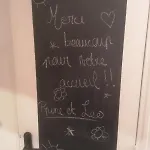 Merci
beaucoup
pour votre
accueil !!
et Luc